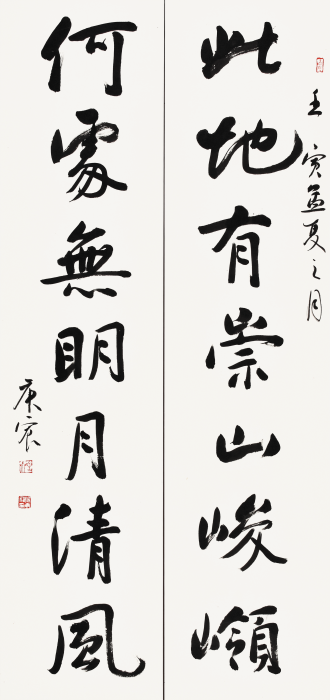 此地有崇山峻嶺
壬寅孟夏之月
何處無明月清風
庚宸